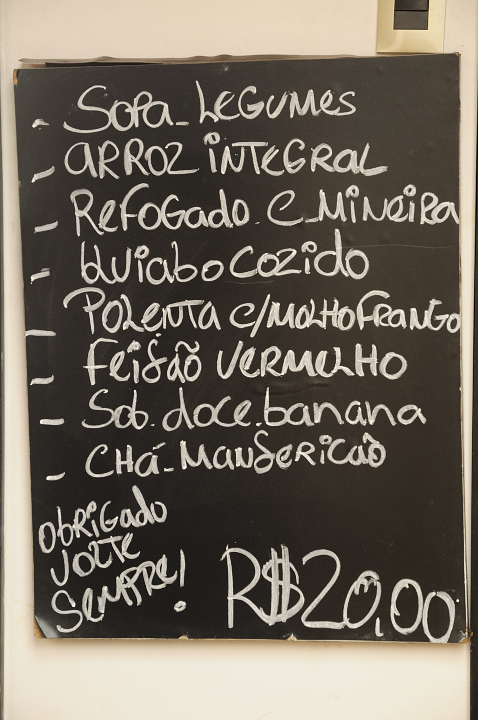 - Sopa - Legumes
- Arroz Integral
- Refogado. C_Mineira
- Quiabo Cozido
- Polenta c/molho Frango
- Feijão Vermelho
- Sob. doce. banana
- Chá - Manjericão
Obrigado
Volte
Sempre!
R$20,00